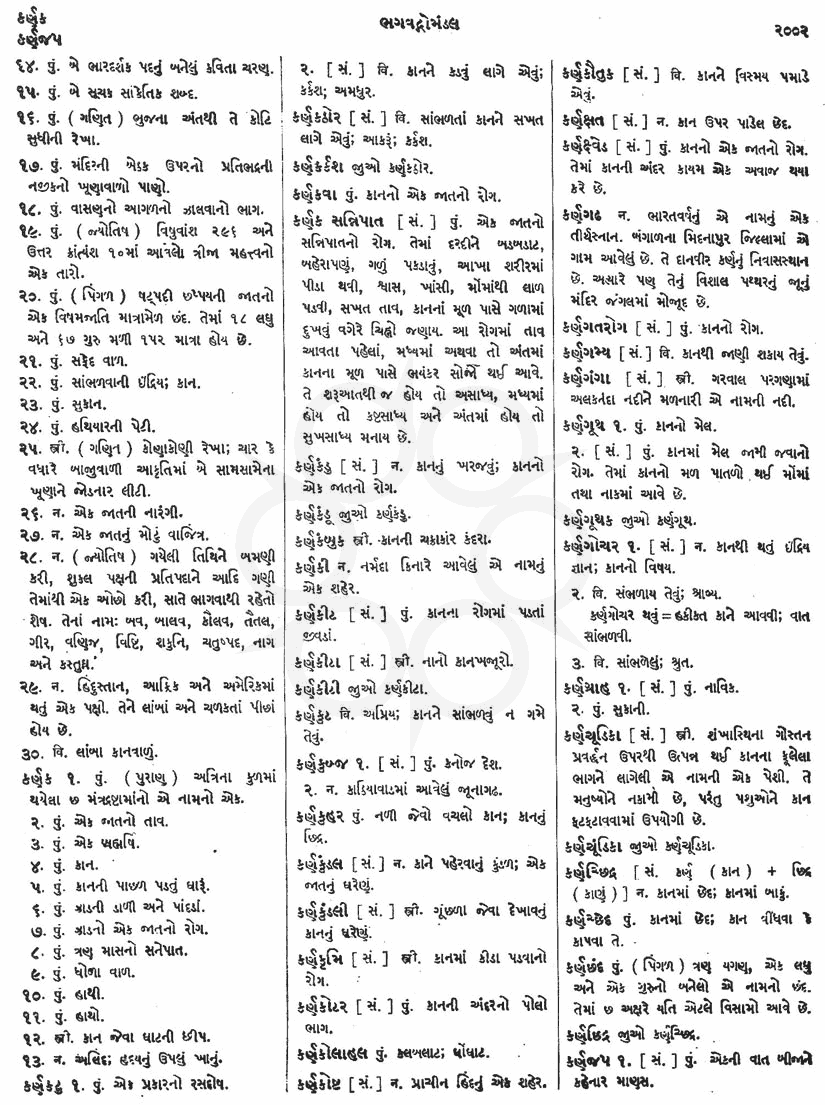 કર્ણક
કર્ણજપ
ભગવદ્ગોમંડલ
૨૦૦૨
૧૪. પું. બે ભારદર્શક પદનું બનેલું કવિતા ચરણ.
૧૫. પું. બે સૂચક સાંકેતિક શબ્દ.
૧૬. પું. ( ગણિત ) ભુજના અંતથી તે કોટિ
સુધીની રેખા.
૧૭. પું. મંદિરની બેઠક ઉપરનો પ્રતિભદ્રની
નજીકનો ખૂણાવાળો પાણો.
૧૮. પું. વાસણનો આગળનો ઝાલવાનો ભાગ.
૧૯. પું. ( જ્યોતિષ ) વિષુવાંશ ૨૯૬ અને
ઉત્તર ક્રાંત્યંશ ૧૦માં આવેલો ત્રીજા મહત્ત્વનો
એક તારો.
૨૦. પું. ( પિંગળ ) ષટ્પદી છપ્પયની જાતનો
એક વિષમજાતિ માત્રામેળ છંદ. તેમાં ૧૮ લઘુ
અને ૬૭ ગુરુ મળી ૧૫૨ માત્રા હોય છે.
૨૧. પું. સફેદ વાળ.
૨૨. પું. સાંભળવાની ઇંદ્રિય; કાન.
૨૩. પું. સુકાન.
૨૪. પું. હથિયારની પેટી.
૨૫. સ્ત્રી. ( ગણિત ) કોણાકોણી રેખા; ચાર કે
વધારે બાજુવાળી આકૃતિમાં બે સામસામેના
ખૂણાને જોડનાર લીટી.
૨૬. ન. એક જાતની નારંગી.
૨૭. ન. એક જાતનું મોટું વાજિંત્ર.
૨૮. ન. ( જ્યોતિષ ) ગયેલી તિથિને બમણી
કરી, શુકલ પક્ષની પ્રતિપદાને આદિ ગણી
તેમાંથી એક ઓછો કરી, સાતે ભાગવાથી રહેતો
શેષ. તેનાં નામઃ બવ, બાલવ, કૌલવ, તૈતલ,
ગીર, વણિજ, વિષ્ટિ, શકુનિ, ચતુષ્પદ, નાગ
અને કસ્તુઘ્ન.
૨૯. ન. હિંદુસ્તાન, આફ્રિક અને અમેરિકમાં
થતું એક પક્ષી. તેને લાંબાં અને ચળકતાં પીછાં
હોય છે.
૩૦. વિ. લાંબા કાનવાળું.
કર્ણક ૧. પું. ( પુરાણ ) અત્રિના કુળમાં
થયેલા ૭ મંત્રદ્રષ્ટામાંનો એ નામનો એક.
૨. પું. એક જાતનો તાવ.
૩. પું. એક બ્રહ્મર્ષિ.
૪. પું. કાન.
૫. પું. કાનની પાછળ પડતું ધારું.
૬. પું. ઝાડની ડાળી અને પાંદડાં.
૭. પું. ઝાડનો એક જાતનો રોગ.
૮. પું. ત્રણ માસનો સનેપાત.
૯. પું. ધોળા વાળ.
૧૦. પું. હાથી.
૧૧. પું. હાથો.
૧૨. સ્ત્રી. કાન જેવા ઘાટની છીપ.
૧૩. ન. અલિંદ; હૃદયનું ઉપલું ખાનું.
કર્ણકટુ ૧. પું. એક પ્રકારનો રસદોષ.
૨. [ સં. ] વિ. કાનને કડવું લાગે એવું;
કર્કશ; અમધુર.
કર્ણકઠોર [ સં. ] વિ. સાંભળતાં કાનને સખત
લાગે એવું; આકરૂં; કર્કશ.
કર્ણકર્કશ જુઓ કર્ણકઠોર.
કર્ણકવા પું. કાનનો એક જાતનો રોગ.
કર્ણક સન્નિપાત [ સં. ] પું. એક જાતનો
સન્નિપાતનો રોગ. તેમાં દરદીને બડબડાટ,
બહેરાપણું, ગળું પકડાવું, આખા શરીરમાં
પીડા થવી, શ્વાસ, ખાંસી, મોંમાંથી લાળ
પડવી, સખત તાવ, કાનનાં મૂળ પાસે ગળામાં
દુખવું વગેરે ચિહ્નો જણાય. આ રોગમાં તાવ
આવતા પહેલાં, મધ્યમાં અથવા તો અંતમાં
કાનના મૂળ પાસે ભયંકર સોજો થઈ આવે.
તે શરૂઆતથી જ હોય તો અસાધ્ય, મધ્યમાં
હોય તો કષ્ટસાધ્ય અને અંતમાં હોય તો
સુખસાધ્ય મનાય છે.
કર્ણકંડુ [ સં. ] ન. કાનનું ખરજવું; કાનનો
એક જાતનો રોગ.
કર્ણકંડૂ જુઓ કર્ણકંડુ.
કર્ણકંબુક સ્ત્રી. કાનની ચક્રાકાર કંદરા.
કર્ણકી ન. નર્મદા કિનારે આવેલું એ નામનું
એક શહેર.
કર્ણકીટ [ સં. ] પું. કાનના રોગમાં પડતાં
જીવડાં.
કર્ણકીટા [ સં. ] સ્ત્રી. નાનો કાનખજૂરો.
કર્ણકીટી જુઓ કર્ણકીટા.
કર્ણકુટ વિ. અપ્રિય; કાનને સાંભળવું ન ગમે
તેવું.
કર્ણકુબ્જ ૧. [ સં. ] પું. કનોજ દેશ.
૨. ન. કાઠિયાવાડમાં આવેલું જૂનાગઢ.
કર્ણકુહર પું. નળી જેવો વચલો કાન; કાનનું
છિદ્ર.
કર્ણકુંડલ [ સં. ] ન. કાને પહેરવાનું કુંડળ; એક
જાતનું ઘરેણું.
કર્ણકુંડલી [ સં. ] સ્ત્રી. ગૂંછળા જેવા દેખાવનું
કાનનું ઘરેણું.
કર્ણકૃમિ [ સં. ] સ્ત્રી. કાનમાં કીડા પડવાનો
રોગ.
કર્ણકોટર [ સં. ] પું. કાનની અંદરનો પોલો
ભાગ.
કર્ણકોલાહલ પું. કલબલાટ; ઘોંઘાટ.
કર્ણકોષ્ટ [ સં. ] ન. પ્રાચીન હિંદનું એક શહેર.
કર્ણકૌતુક [ સં. ] વિ. કાનને વિસ્મય પમાડે
એવું.
કર્ણક્ષત [ સં. ] ન. કાન ઉપર પાડેલ છેદ.
કર્ણક્ષ્વેડ [ સં. ] પું. કાનનો એક જાતનો રોગ.
તેમાં કાનની અંદર કાયમ એક અવાજ થયા
કરે છે.
કર્ણગઢ ન. ભારતવર્ષનું એ નામનું એક
તીર્થસ્નાન. બંગાળના મિદનાપુર જિલ્લામાં એ
ગામ આવેલું છે. તે દાનવીર કર્ણનું નિવાસસ્થાન
છે. અત્યારે પણ તેનું વિશાલ પથ્થરનું જૂનું
મંદિર જંગલમાં મોજૂદ છે.
કર્ણગતરોગ [ સં. ] પું. કાનનો રોગ.
કર્ણગમ્ય [ સં. ] વિ. કાનથી જાણી શકાય તેવું.
કર્ણગંગા [ સં. ] સ્ત્રી. ગરવાલ પરગણામાં
અલકનંદા નદીને મળનારી એ નામની નદી.
કર્ણગૂથ ૧. પું. કાનનો મેલ.
૨. [ સં. ] પું. કાનમાં મેલ જામી જવાનો
રોગ. તેમાં કાનનો મળ પાતળો થઈ મોંમાં
તથા નાકમાં આવે છે.
કર્ણગૂથક જુઓ કર્ણગૂથ.
કર્ણગોચર ૧. [ સં. ] ન. કાનથી થતું ઇંદ્રિય
જ્ઞાન; કાનનો વિષય.
૨. વિ. સંભળાય તેવું; શ્રાવ્ય.
કર્ણગોચર થવું = હકીકત કાને આવવી; વાત
સાંભળવી.
૩. વિ. સાંભળેલું; શ્રુત.
કર્ણગ્રાહ ૧. [ સં. ] પું. નાવિક.
૨. પું. સુકાની.
કર્ણચૂડિકા [ સં. ] સ્ત્રી. શંખાસ્થિના ગોસ્તન
પ્રવર્દ્ધન ઉપરથી ઉત્પન્ન થઈ કાનના ફૂલેલા
ભાગને લાગેલી એ નામની એક પેશી. તે
મનુષ્યોને નકામી છે, પરંતુ પશુઓને કાન
ફટફટાવવામાં ઉપયોગી છે.
કર્ણચૂંડિકા જુઓ કર્ણચૂડિકા.
કર્ણચ્છિદ્ર [ સં. કર્ણ ( કાન ) + છિદ્ર
( કાણું ) ] ન. કાનમાં છેદ; કાનમાં બાકું.
કર્ણચ્છેદ પું. કાનમાં છેદ; કાન વીંધવા કે
કાપવા તે.
કર્ણછંદ પું. ( પિંગળ ) ત્રણ યગણ, એક લઘુ
અને એક ગુરુનો બનેલો એ નામનો છંદ.
તેમાં ૭ અક્ષરે યતિ એટલે વિસામો આવે છે.
કર્ણછિદ્ર જુઓ કર્ણચ્છિદ્ર.
કર્ણજપ ૧. [ સં. ] પું. એકની વાત બીજાને
કહેનાર માણસ.